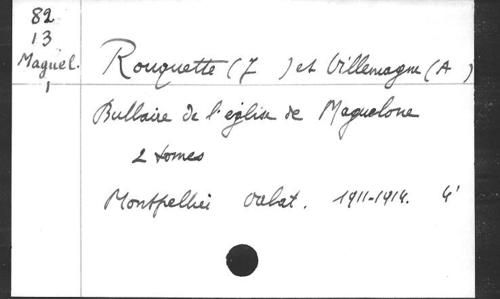 82
13
Maguel.
1
Rouquette (J ) et Villemagne (A )
Bullaire de l'église de Maguelone
2 tomes
Montpellier Valat. 1911-1914. 4°